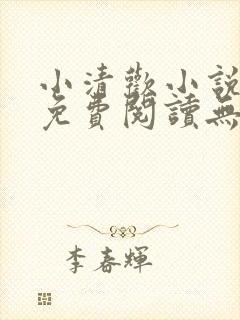 小清歡小說
免費閱讀無
李春輝